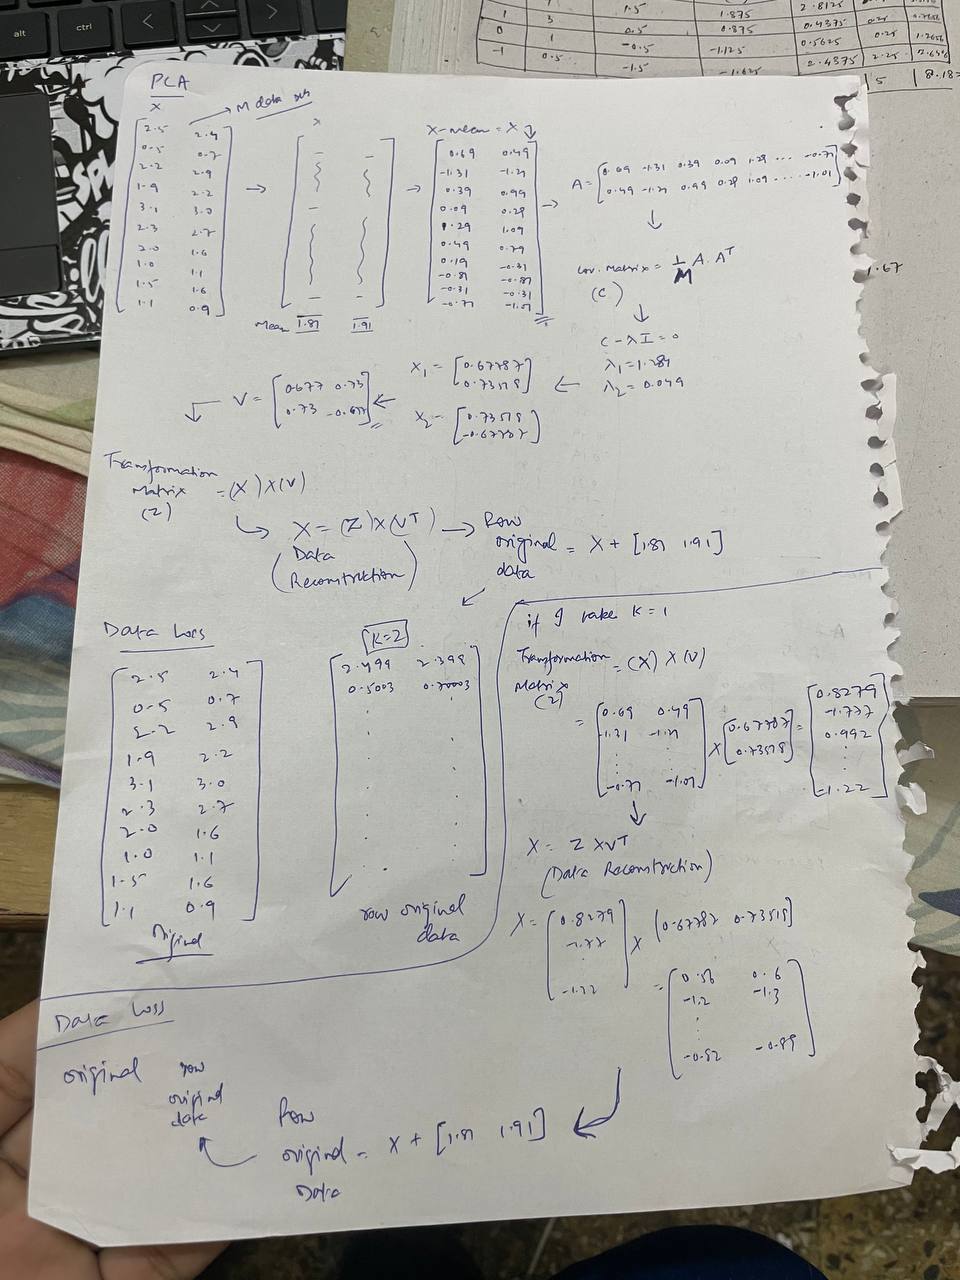 alt
ctrl
1 3 1.5 1.875 2.8125
0 1 0.5 0.875 0.4375 0.25
-1 0.5 -0.5 -1.125 0.5625 0.25
-1.5 -1.625 2.4375 2.25
5
1.67
PCA
X
M data sets
2.5 2.4
0.5 0.7
2.2 2.9
1.9 2.2
3.1 3.0
2.3 2.7
2.0 1.6
1.0 1.1
1.5 1.6
1.1 0.9
X
Mean 1.81 1.91
X-mean = X
0.69 0.49
-1.31 -1.21
0.39 0.99
0.09 0.29
1.29 1.09
0.49 0.79
0.19 -0.31
-0.81 -0.81
-0.31 -0.31
-0.71 -1.01
A = [0.69 -1.31 0.39 0.09 1.29 ... -0.71
0.49 -1.21 0.99 0.29 1.09 ..... -1.01]
Cov. Matrix = 1/M A. A^T
(C)
C - λI = 0
λ1 = 1.284
λ2 = 0.049
X1 = [0.67787
0.73518]
X2 = [0.73518
-0.67787]
V = [0.677 0.73
0.73 -0.677]
Transformation
Matrix = (X) X (V)
(Z)
X = (Z) X (V^T) → Row
original = X + [1.81 1.91]
data
(Data
Reconstruction)
Data Loss
2.5 2.4
0.5 0.7
2.2 2.9
1.9 2.2
3.1 3.0
2.3 2.7
2.0 1.6
1.0 1.1
1.5 1.6
1.1 0.9
original
K=2
2.499 2.399
0.5003 0.70003
row original
data
if I take K = 1
Transformation = (X) X (V)
Matrix
(Z)
= [0.69 0.49
-1.31 -1.21
-0.71 -1.01] X [0.67787
0.73518] = [0.8279
-1.777
0.992
-1.22]
X = Z X V^T
(Data Reconstruction)
X = [0.8279
-1.77
-1.22] X [0.67787 0.73518]
= [0.56 0.6
-1.2 -1.3
-0.82 -0.89]
Data Loss
original row
original
data
Row
original = X + [1.81 1.91]
Data